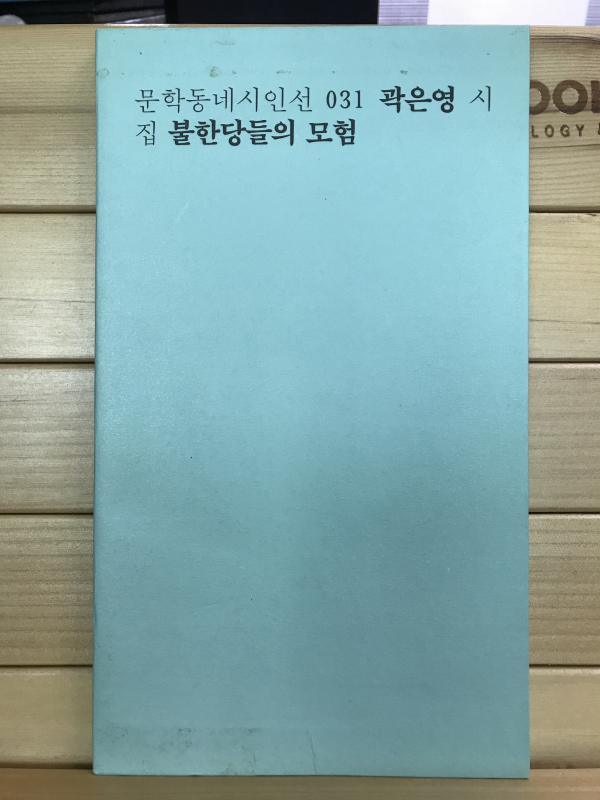 문학동네시인선 031 곽은영 시
집 불한당들의 모험
OO
LOGY &